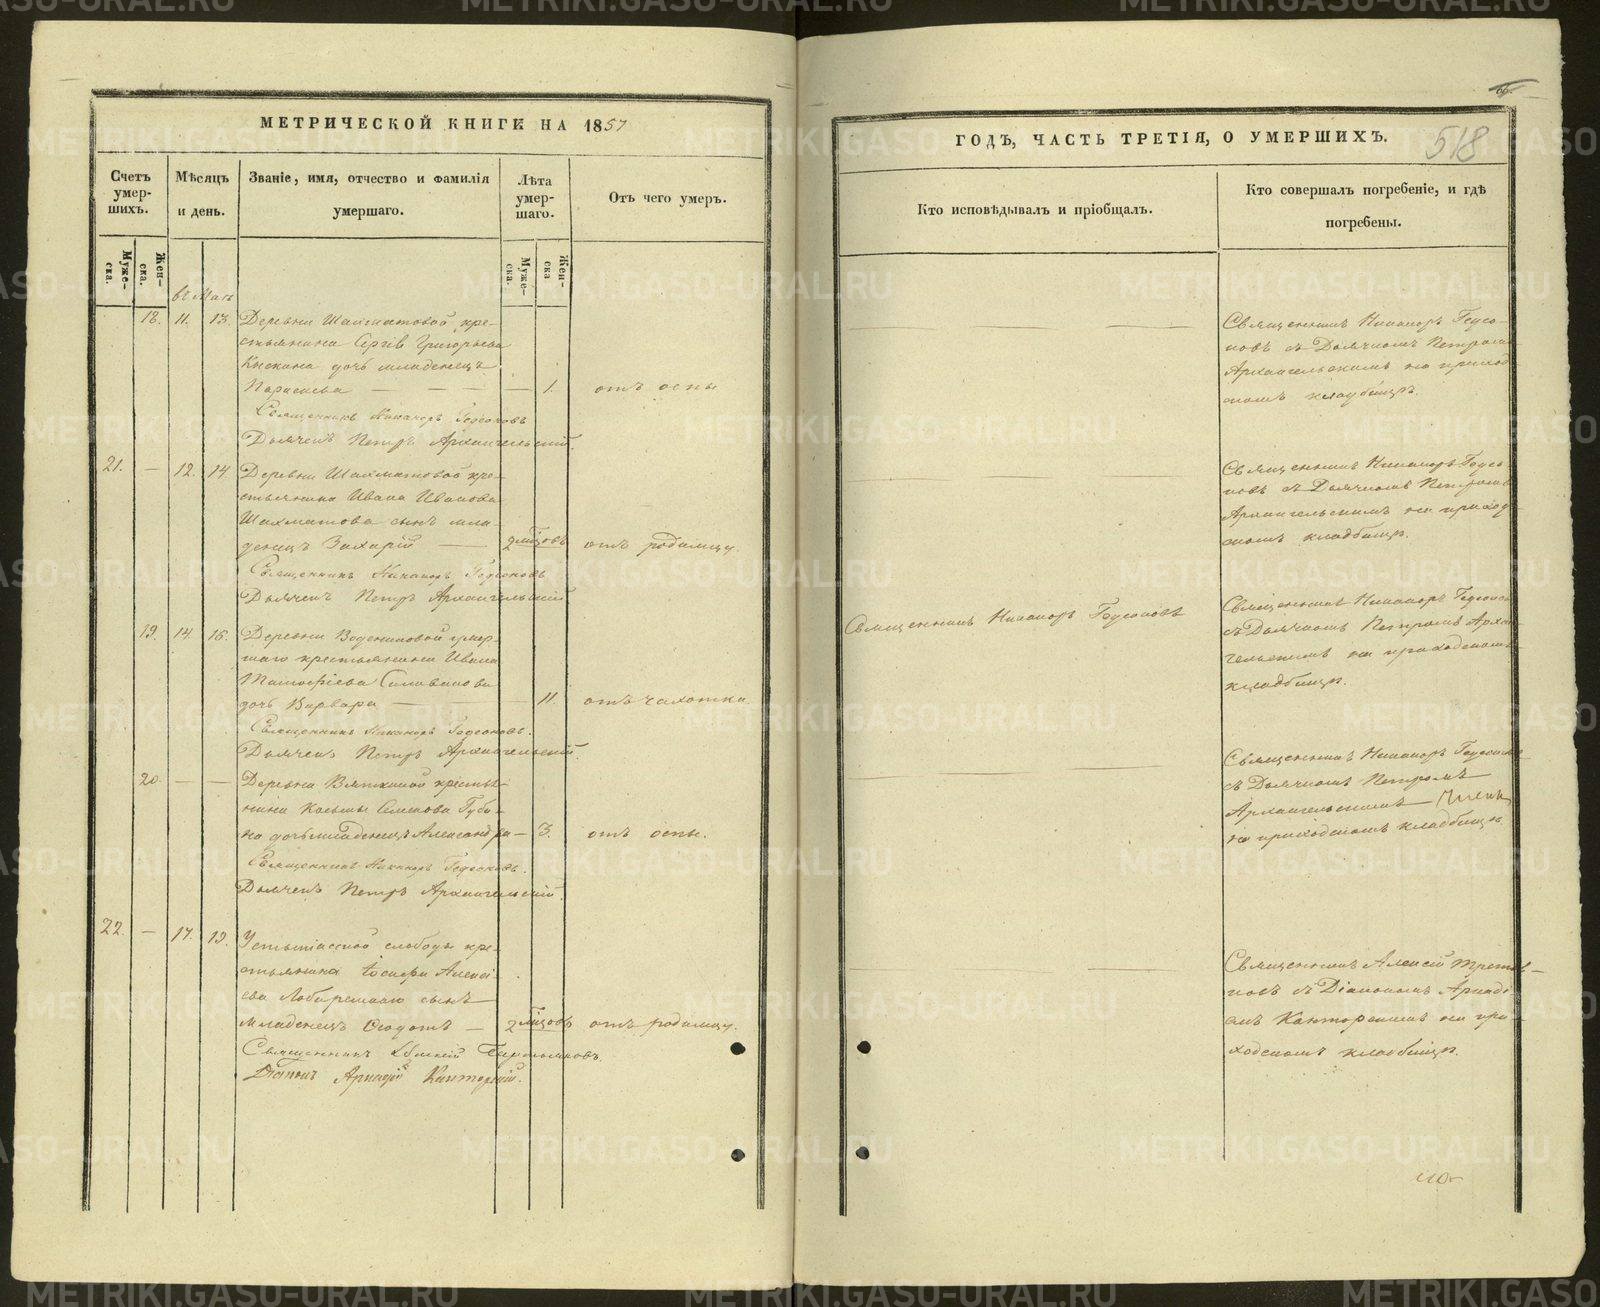 МЕТРИЧЕСКОЙ КНИГИ НА 1857
Счетъ умер-шихъ.
Муже-ска.
Жен-ска.
Мѣсяцъ и день.
Званіе, имя, отчество и фамилія умершаго.
Лѣта умер-шаго.
Муже-ска.
Жен-ска
Отъ чего умеръ.
въ Маѣ
18. 11. 13. Деревни Шахматовой кре-
стьянина Сергія Григорьева
дочь младенецъ
Параскева — — — — 1. отъ оспы
Священникъ Никаноръ Гедеоновъ
Дьячекъ Петръ Архангельскій
21. — 12. 14. Деревни Шахматовой кре-
стьянина Ивана Иванова
Шахматова сынъ мла-
денецъ Захарій — 2 мѣцовъ отъ родимцу.
Священникъ Никаноръ Гедеоновъ
Дьячекъ Петръ Архангельскій
19. 14. 16. Деревни умер-
шаго крестьянина Ивана
Тимофѣева Селиванова
дочь Варвара — — 11. отъ чахотки
Священникъ Никаноръ Гедеоновъ.
Дьячекъ Петръ Архангельскій.
20. — — Деревни Вяткиной крестья-
нина Косьмы Семенова Губи-
на дочь младенецъ Александра — 3. отъ оспы.
Священникъ Никаноръ Гедеоновъ.
Дьячекъ Петръ Архангельскій.
22. — 17. 19. слободы кре-
стьянина Іосифа Алексѣ-
ева сынъ
младенецъ Ѳеодотъ — 2 мѣцовъ отъ родимцу.
Священникъ Алексій
Діаконъ Аркадій Канторскій.
ГОДЪ, ЧАСТЬ ТРЕТІЯ, О УМЕРШИХЪ.
518
Кто исповѣдывалъ и пріобщалъ.
Кто совершалъ погребеніе, и гдѣ погребены.
Священникъ Никаноръ Гедео-
новъ съ Дьячкомъ Петромъ
Архангельскимъ на приход-
скомъ кладбищѣ.
Священникъ Никаноръ Гедео-
новъ съ Дьячкомъ Петромъ
Архангельскимъ на приход-
скомъ кладбищѣ.
Священникъ Никаноръ Гедеоновъ
Священникъ Никаноръ Гедеоновъ
съ Дьячкомъ Петромъ Архан-
гельскимъ на приходскомъ
кладбищѣ.
Священникъ Никаноръ Гедеоновъ
съ Дьячкомъ Петромъ
Архангельскимъ
на приходскомъ кладбищѣ
Священникъ Алексій
съ Діакономъ Аркаді-
емъ Канторскимъ на при-
ходскомъ кладбищѣ.
METRIKI.GASO-URAL.RU